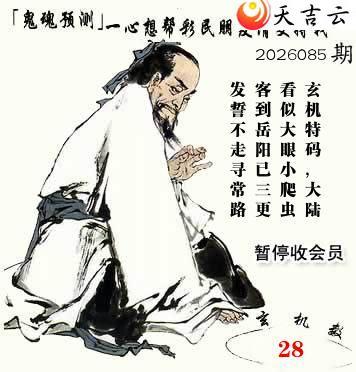 天吉云
「鬼魂预测」一心想帮彩民朋
2026085期
玄机特码，大陆
看似大眼小爬虫
客到岳阳已三更
发誓不走寻常路
暂停收会员
玄机
28